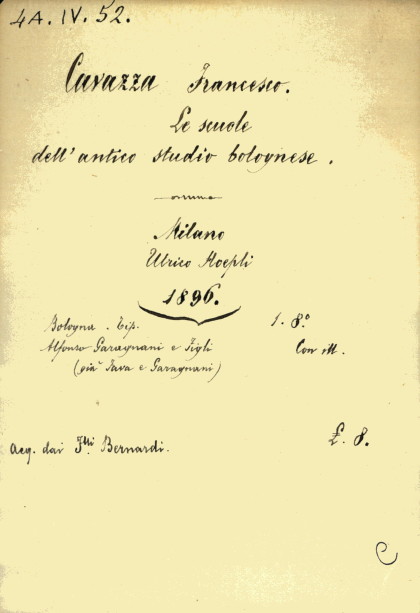 4A. IV. 52.
Cavazza Francesco.
Le scuole
dell'antico studio bolognese.
Milano
Ulrico Hoepli
1896.
Bologna. Tip. 1. 8.º
Alfonso Garagnani e Figli Con ill.
(già Fava e Garagnani)
Acq. dai F.lli Bernardi. £. 8.
C